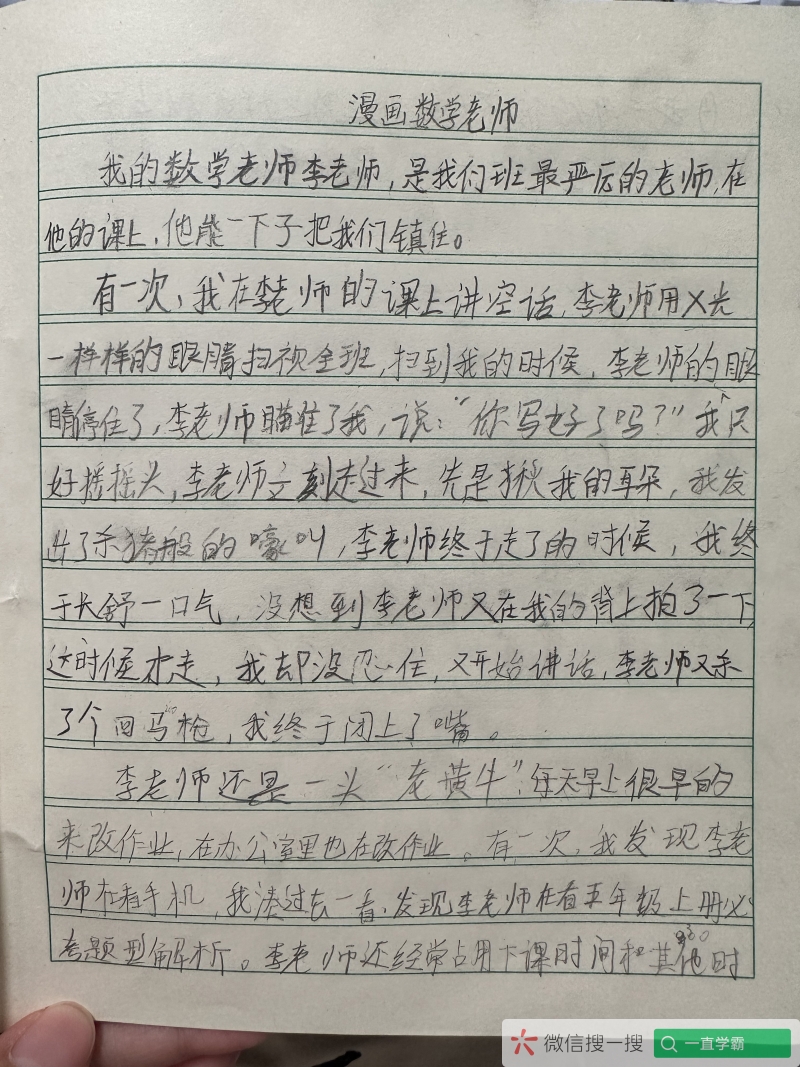 漫画数学老师
我的数学老师李老师,是我们班最严厉的老师,在
他的课上,他能一下子把我们镇住。
有一次,我在李老师的课上讲空话,李老师用X光
一样样的眼睛扫视全班,扫到我的时候,李老师的眼
睛停住了,李老师瞄准了我,说:“你写好了吗?”我只
好摇摇头,李老师立刻走过来,先是揪我的耳朵,我发
出了杀猪般的嚎叫,李老师终于走了的时候,我终
于长舒一口气,没想到李老师又在我的背上拍了一下,
这时候才走,我却没忍住,又开始讲话,李老师又杀
了个回马枪,我终于闭上了嘴。
李老师还是一头“老黄牛”,每天早上很早的
来改作业,在办公室里也在改作业。有一次,我发现李老
师在看手机,我凑过去一看,发现李老师在看五年级上册必
考题型解析。李老师还经常占用下课时间和其他时
微信搜一搜
一直学霸